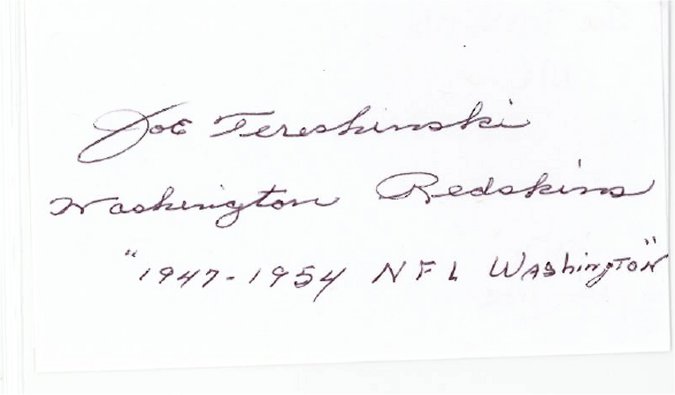 Joe Tereshinski
Washington Redskins
"1947-1954 NFL Washington"